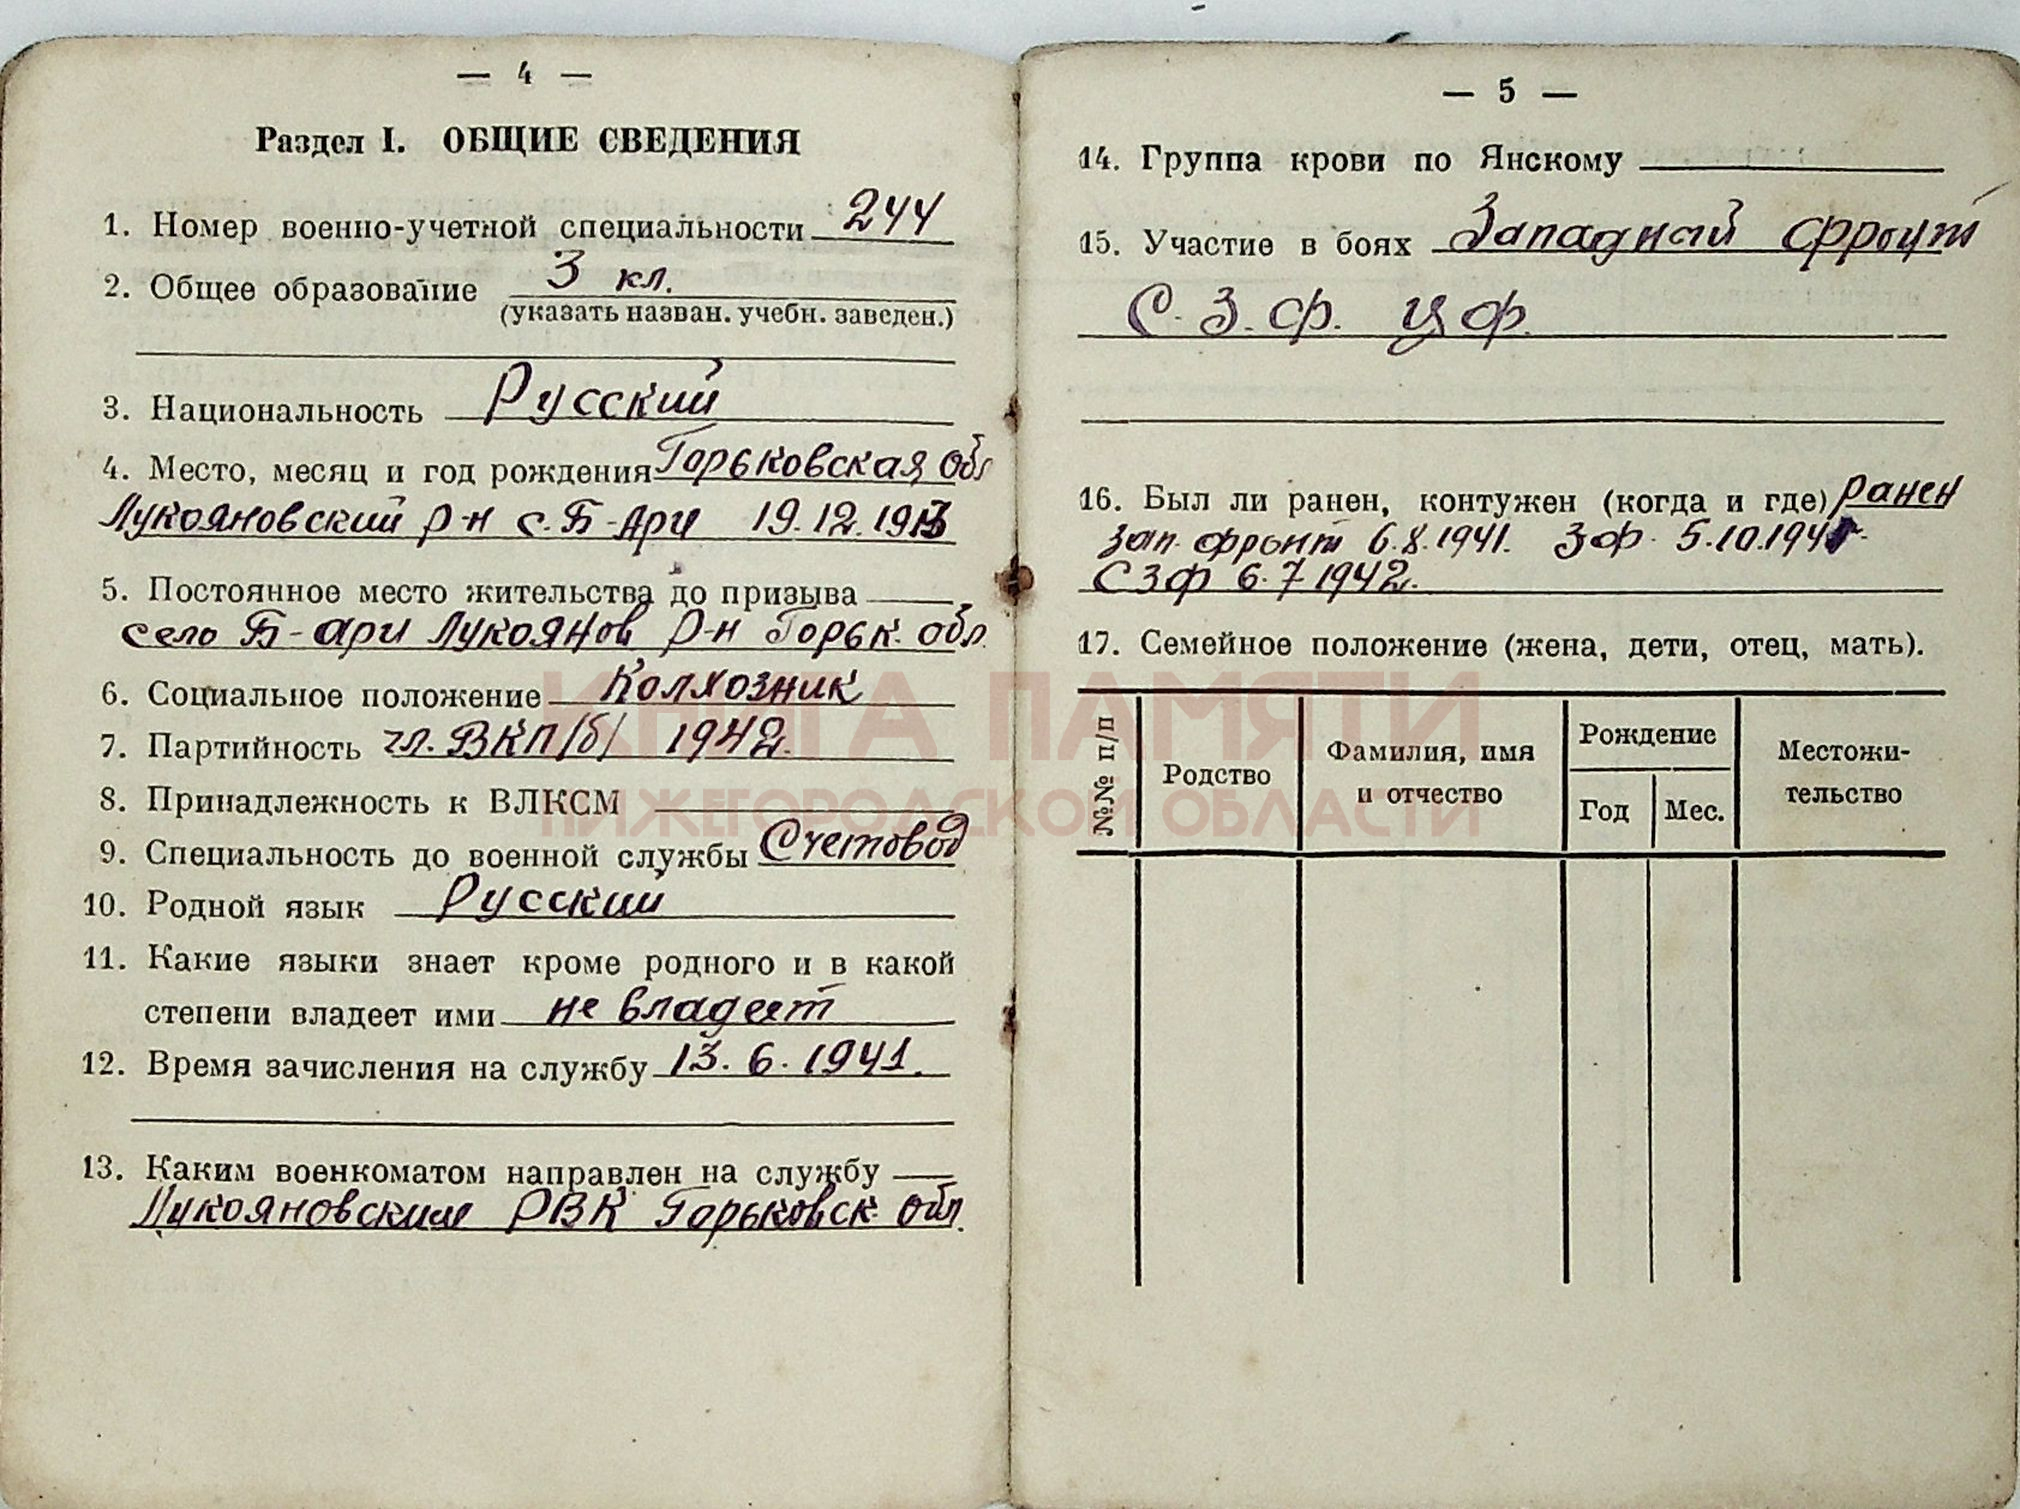 — 4 —
Раздел I. ОБЩИЕ СВЕДЕНИЯ
1. Номер военно-учетной специальности 244
2. Общее образование 3 кл.
(указать назван. учебн. заведен.)
3. Национальность Русский
4. Место, месяц и год рождения Горьковская обл
Лукояновский р-н с. Б-Ари 19.12.1913
5. Постоянное место жительства до призыва
село Б-ари Лукоянов р-н Горьк. обл.
6. Социальное положение Колхозник
7. Партийность чл. ВКП/б/ 1942.
8. Принадлежность к ВЛКСМ
9. Специальность до военной службы Счетовод
10. Родной язык Русский
11. Какие языки знает кроме родного и в какой
степени владеет ими не владеет
12. Время зачисления на службу 13.6.1941.
13. Каким военкоматом направлен на службу
Лукояновским РВК Горьковск. обл.
— 5 —
14. Группа крови по Янскому
15. Участие в боях Западный фронт
С.З.Ф. ЦФ.
16. Был ли ранен, контужен (когда и где) ранен
зап. фронт 6.8.1941. ЗФ. 5.10.194
СЗФ 6.7 1942.
17. Семейное положение (жена, дети, отец, мать).
№№ п/п
Родство
Фамилия, имя
и отчество
Рождение
Год
Мес.
Местожи-
тельство
КНИГА ПАМЯТИ
НИЖЕГОРОДСКОЙ ОБЛАСТИ